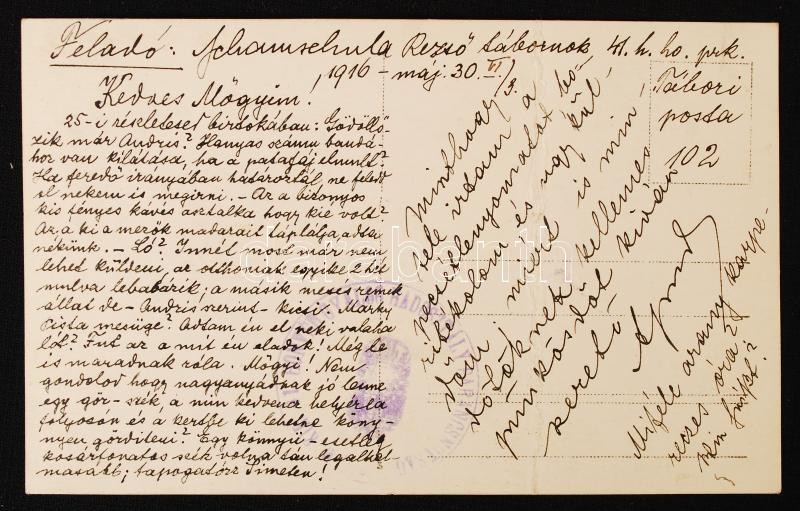 Feladó: Schamschula Rezső tábornok 41. h. ho. prk.
1916 - máj. 30. VI/9.
Kedves Mögyim!
25-i részletesed birtokában: Gödöllő-
zik már Andris? Hanyas számú bandá-
hoz van kilátása, ha a patagáj elmúlt?
Ha feredő irányában határoztál, ne feledd
el nekem is megírni. - Az a bizonyos
kis fényes kávés asztalka hogy kié volt?
Az, a ki a merők madarait táplálja, adta
nekünk. - Ló? Innét most már nem
lehet küldeni, az otthoniak egyike 2 hét
mulva lebabázik; a másik mesés remek
állat de - Andris szerint - kicsi. Márky
Pista meséje: Adtam én el neki valaha
lót? Fut az a mit én eladok! Még le
is maradnak róla. Mögyi! Nem
gondolod hogy nagyanyádnak jó lenne
egy gör-szék, a min kedvenc helyéről a
folyosón és a kertbe ki lehetne köny-
nyen gördíteni? Egy könnyű - esetleg
kosárfonatos szék volna tán legalkal-
masabb; tapogatózz Timeten!
Tábori
posta
102
Minthogy
tele irtam a
pecsételnyomatot bő-
ribékolom és úgy kül-
döm, miért is min-
dőtöknek kellemes
pünkösdöt kíván
kerető
Apud
Miféle arany karpe-
reczes óra az